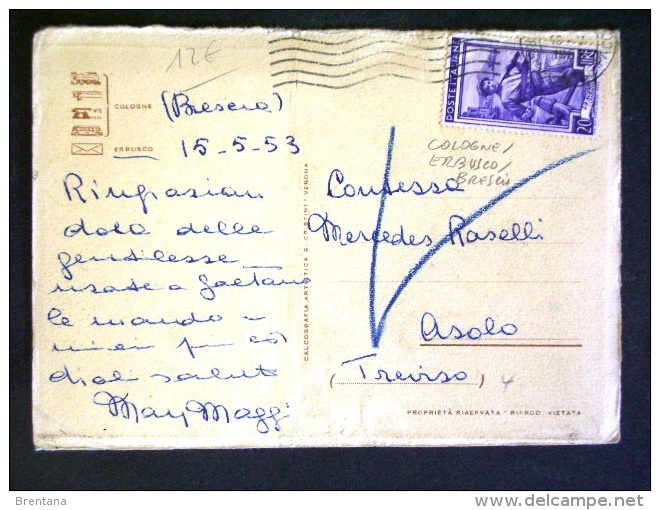 12€
COLOGNE
N°1
ERBUSCO
(Brescia)
15-5-53
Ringrazian
dola delle
gentilesse
usate a Gaetano
le mando i
miei più cor
diali saluti
May Maggi
CALCOGRAFIA ARTISTICA G. CRISTINI - VERONA
POSTE ITALIANE
20
COLOGNE/
ERBUSCO/
BRESCIA
Contessa
Mercedes Raselli
Asolo
(Treviso)
PROPRIETÀ RISERVATA - RIPROD. VIETATA
Brentana
delcampe.net